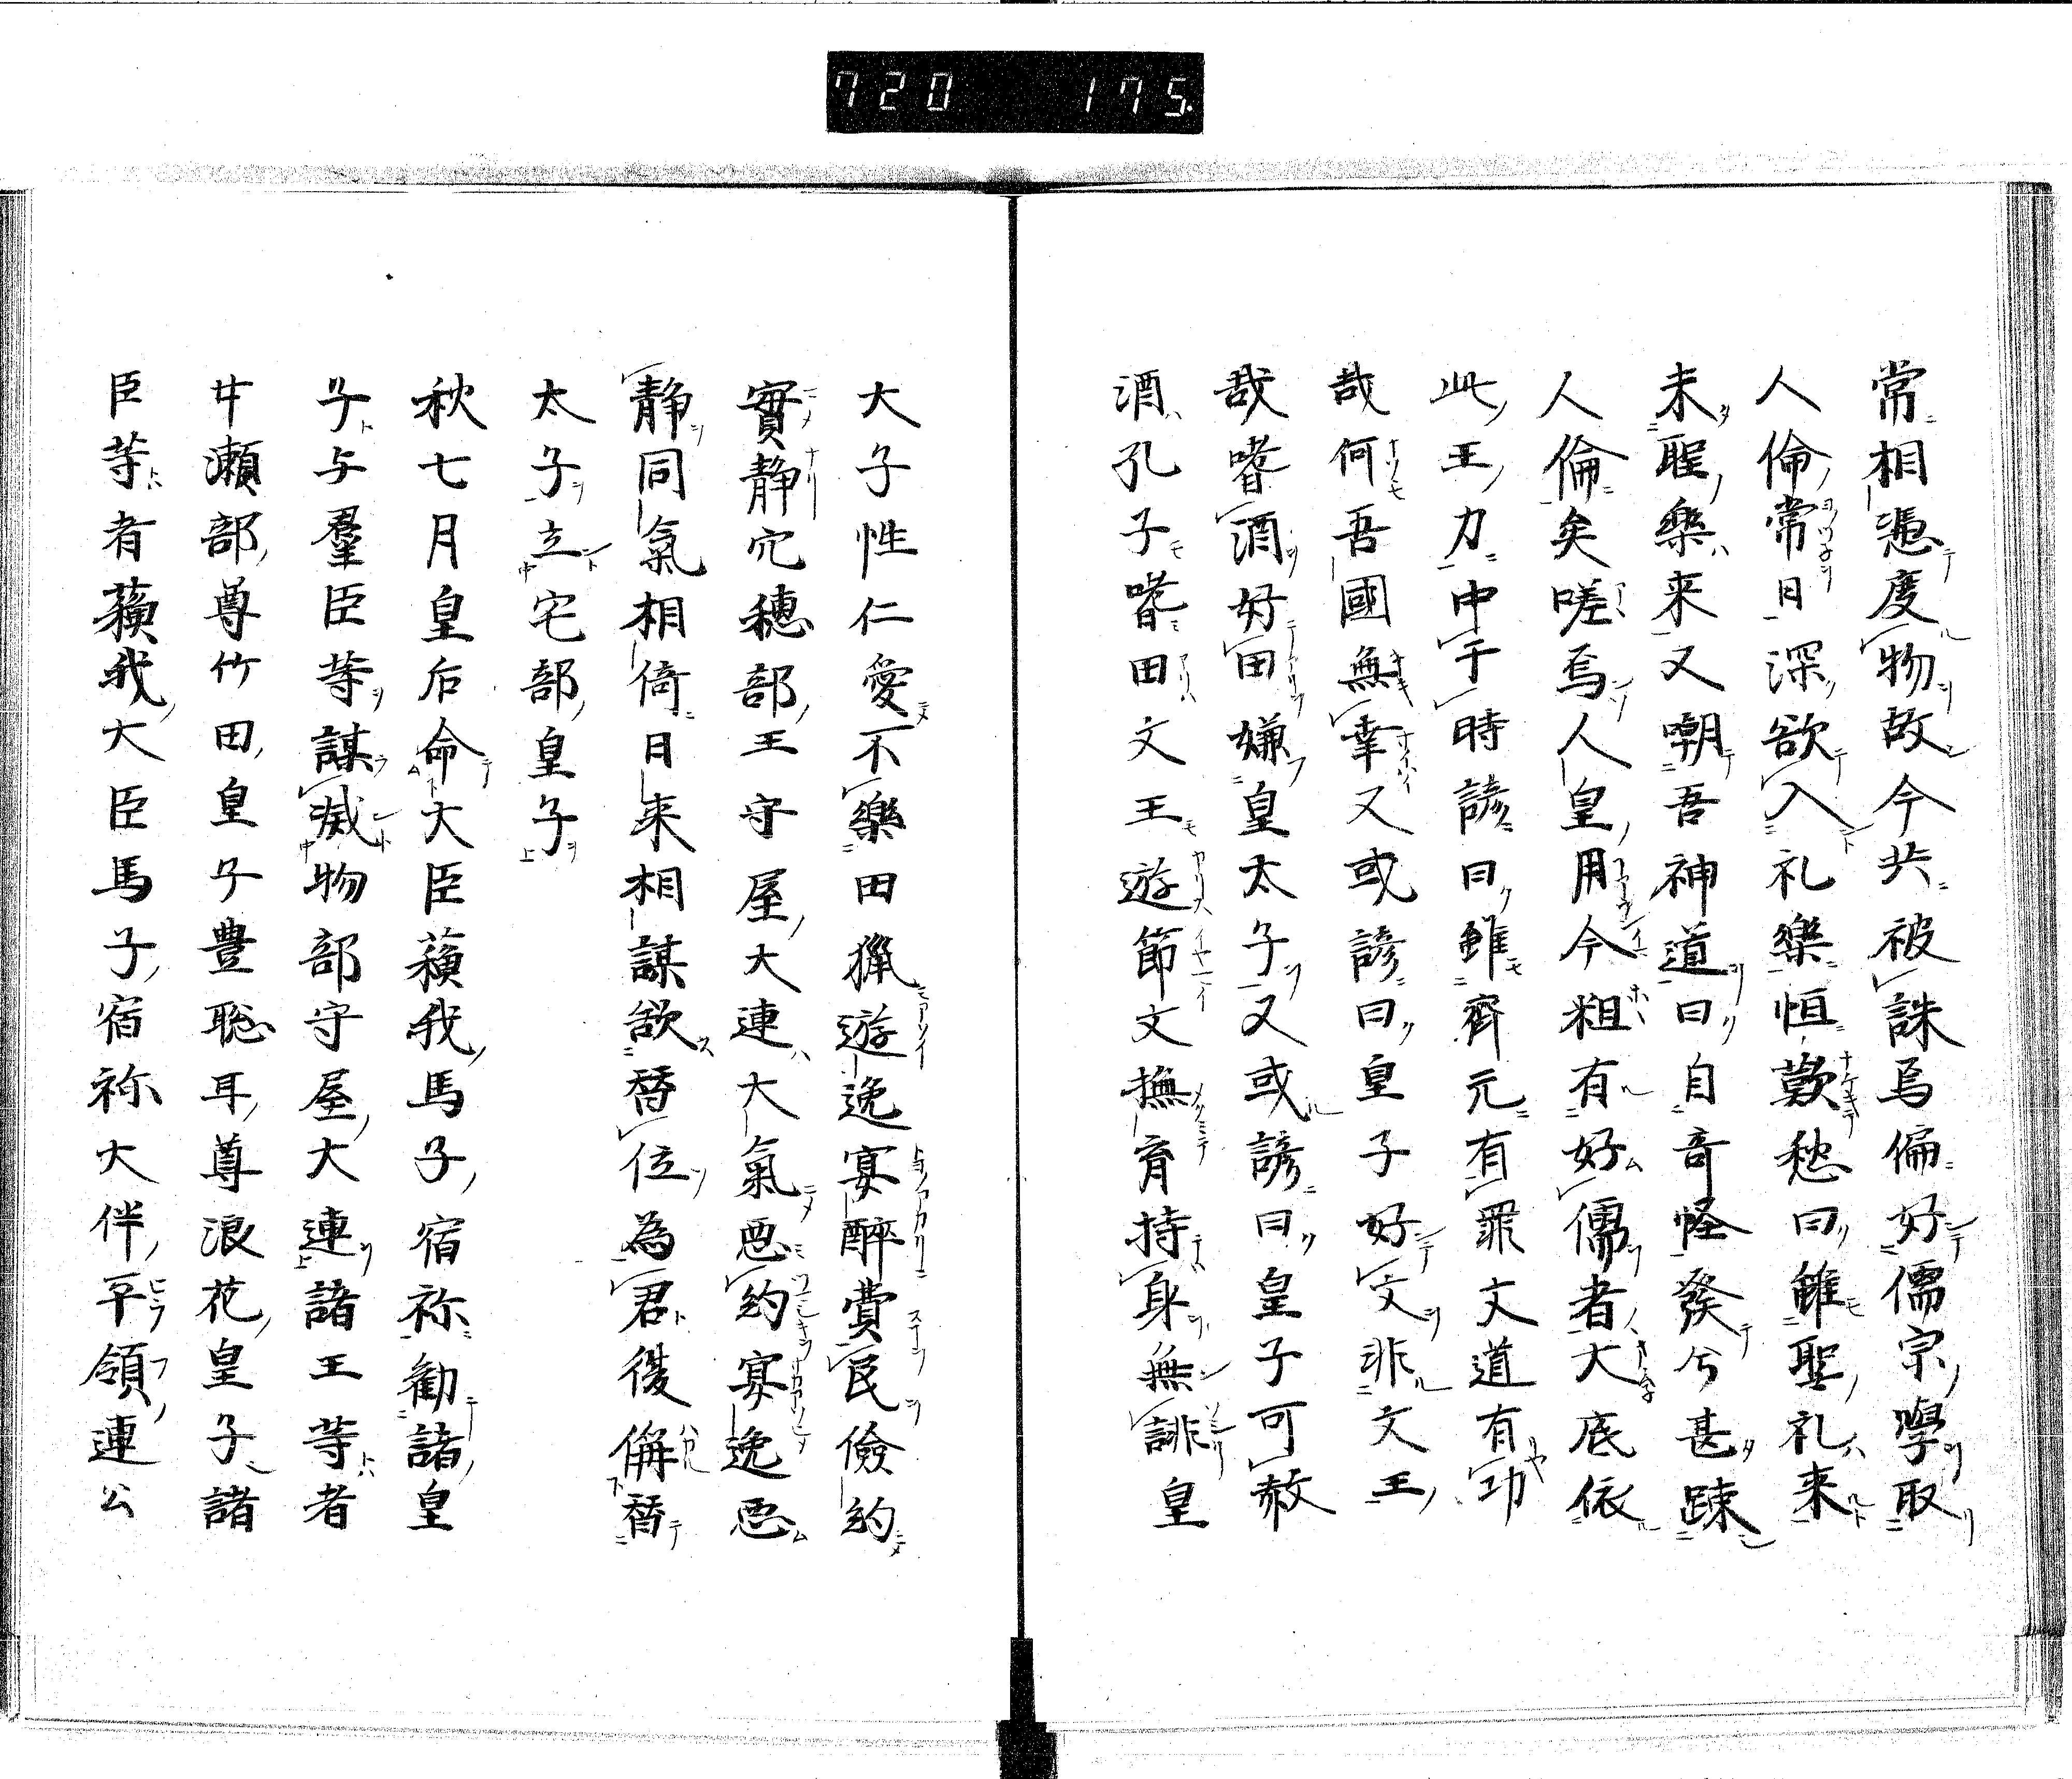 720 175.
常相憑度物故今共被誅烏偏好儒宗學取
人倫常日深欲入礼樂恒歎愁曰雖聖礼来
未聖樂来又嘲吾神道曰自竒怪發兮甚踈
人倫矣嗟焉人皇用今粗有好儒者大底依
此王力中于時諺曰雖齊元有罪文道有功
哉何吾國無幸又或諺曰皇子好文非文王
哉嗜酒好田嫌皇太子又或諺曰皇子可赦
酒孔子嗜田文王遊節文撫育持身無誹皇
大子性仁愛不樂田獵遊逸宴醉費民儉約
實静穴穗部王守屋大連大氣惡約宴逸惡
静同氣相倚日来相謀欲替位為君後偁替
太子立宅部皇子
秋七月皇后命大臣蘓我馬子宿祢勸諸皇
子与羣臣等謀滅物部守屋大連諸王等者
廾瀬部尊竹田皇子豊聡耳尊浪花皇子諸
臣等者蘓我大臣馬子宿祢大伴平領連公